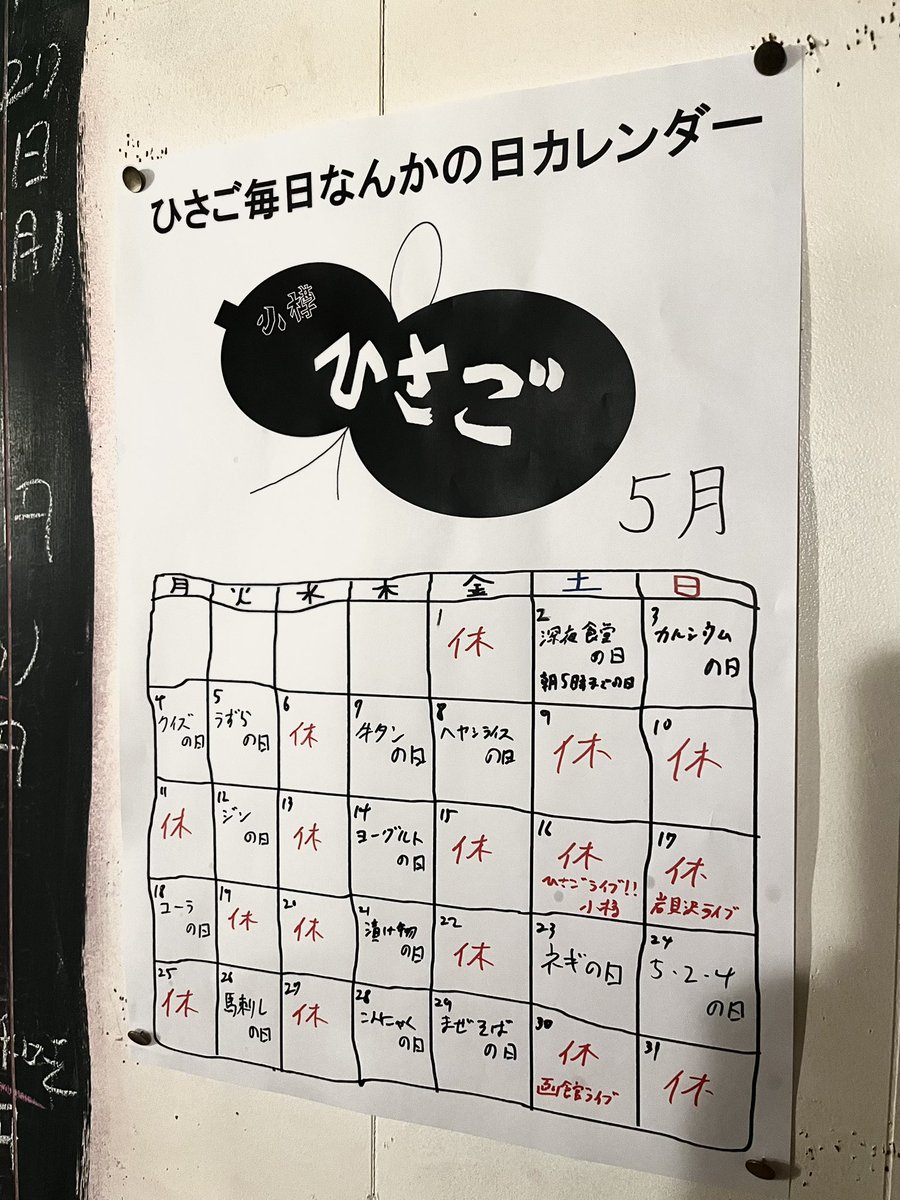 ひさご毎日なんかの日カレンダー
小樽
ひさご
5月
月 火 水 木 金 土 日
1
休
2
深夜食堂
の日
朝5時までの日
3
カルシウム
の日
4
クイズ
の日
5
うずら
の日
6
休
7
牛タン
の日
8
ハヤシライス
の日
9
休
10
休
11
休
12
ジン
の日
13
休
14
ヨーグルト
の日
15
休
16
休
ひさごライブ!!
小樽
17
休
岩見沢ライブ
18
コーラ
の日
19
休
20
休
21
漬け物
の日
22
休
23
ネギの日
24
5・2・4
の日
25
休
26
馬刺し
の日
27
休
28
こんにゃく
の日
29
まぜそば
の日
30
休
函館ライブ
31
休
日
月
円
円